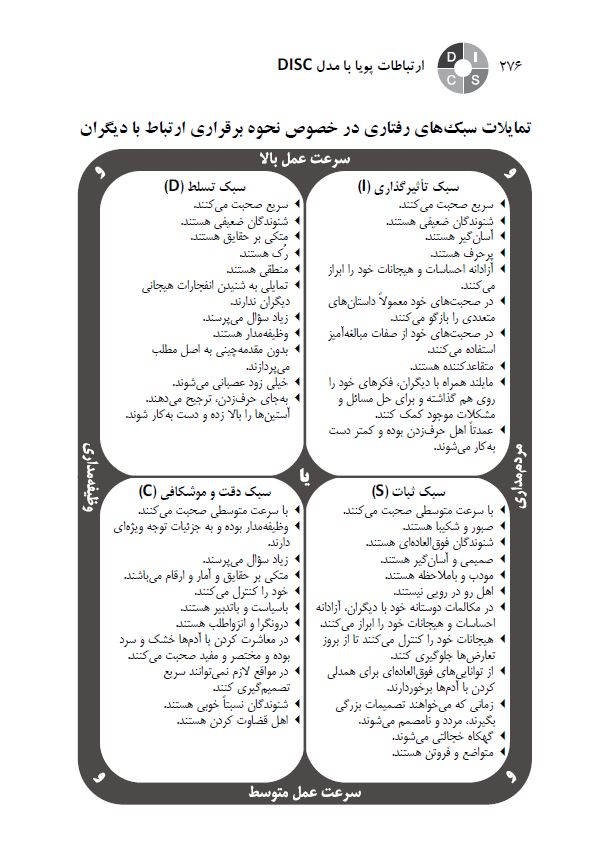 ۲۷۶
D I
C S
ارتباطات پویا با مدل DISC
تمایلات سبک‌های رفتاری در خصوص نحوه برقراری ارتباط با دیگران
سرعت عمل بالا
و
و
سبک تأثیرگذاری (I)
سریع صحبت می‌کنند.
شنوندگان ضعیفی هستند.
آسان‌گیر هستند.
پرحرف هستند.
آزادانه احساسات و هیجانات خود را ابراز
می‌کنند.
در صحبت‌های خود معمولاً داستان‌های
متعددی را بازگو می‌کنند.
در صحبت‌های خود از صفات مبالغه‌آمیز
استفاده می‌کنند.
متقاعدکننده هستند.
مایلند همراه با دیگران، فکرهای خود را
روی هم گذاشته و برای حل مسائل و
مشکلات موجود کمک کنند.
عمدتاً اهل حرف‌زدن بوده و کمتر دست
به‌کار می‌شوند.
سبک تسلط (D)
سریع صحبت می‌کنند.
شنوندگان ضعیفی هستند.
متکی بر حقایق هستند.
رُک هستند.
منطقی هستند.
تمایلی به شنیدن انفجارات هیجانی
دیگران ندارند.
زیاد سؤال می‌پرسند.
وظیفه‌مدار هستند.
بدون مقدمه‌چینی به اصل مطلب
می‌پردازند.
خیلی زود عصبانی می‌شوند.
به‌جای حرف‌زدن، ترجیح می‌دهند.
آستین‌ها را بالا زده و دست به‌کار شوند.
مردم‌مداری
یا
وظیفه‌مداری
سبک ثبات (S)
با سرعت متوسطی صحبت می‌کنند.
صبور و شکیبا هستند.
شنوندگان فوق‌العاده‌ای هستند.
صمیمی و آسان‌گیر هستند.
مودب و باملاحظه هستند.
اهل رو در رویی نیستند.
در مکالمات دوستانه خود با دیگران، آزادانه
احساسات و هیجانات خود را ابراز می‌کنند.
هیجانات خود را کنترل می‌کنند تا از بروز
تعارض‌ها جلوگیری کنند.
از توانایی‌های فوق‌العاده‌ای برای همدلی
کردن با آدم‌ها برخوردارند.
زمانی که می‌خواهند تصمیمات بزرگی
بگیرند، مردد و نامصمم می‌شوند.
گهکاه خجالتی می‌شوند.
متواضع و فروتن هستند.
سبک دقت و موشکافی (C)
با سرعت متوسطی صحبت می‌کنند.
وظیفه‌مدار بوده و به جزئیات توجه ویژه‌ای
دارند.
زیاد سؤال می‌پرسند.
متکی بر حقایق و آمار و ارقام می‌باشند.
خود را کنترل می‌کنند.
باسیاست و باتدبیر هستند.
درونگرا و انزواطلب هستند.
در معاشرت کردن با آدم‌ها خشک و سرد
بوده و مختصر و مفید صحبت می‌کنند.
در مواقع لازم نمی‌توانند سریع
تصمیم‌گیری کنند.
شنوندگان نسبتاً خوبی هستند.
اهل قضاوت کردن هستند.
و
و
سرعت عمل متوسط